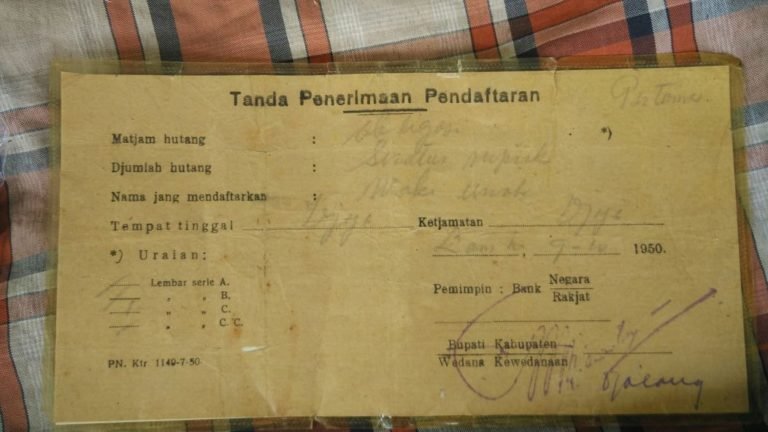 Tanda Penerimaan Pendaftaran
Pertama
Matjam hutang : *)
Djumlah hutang : Seratus rupiah
Nama jang mendaftarkan :
Tempat tinggal Ketjamatan
*) Uraian: , 9-10 1950.
Lembar serie A.
„ „ B.
„ „ C.
„ „ C.C.
Pemimpin : Bank Negara
Rakjat
Bupati Kabupaten
Wedana Kewedanaan
PN. Ktr 1149-7-50